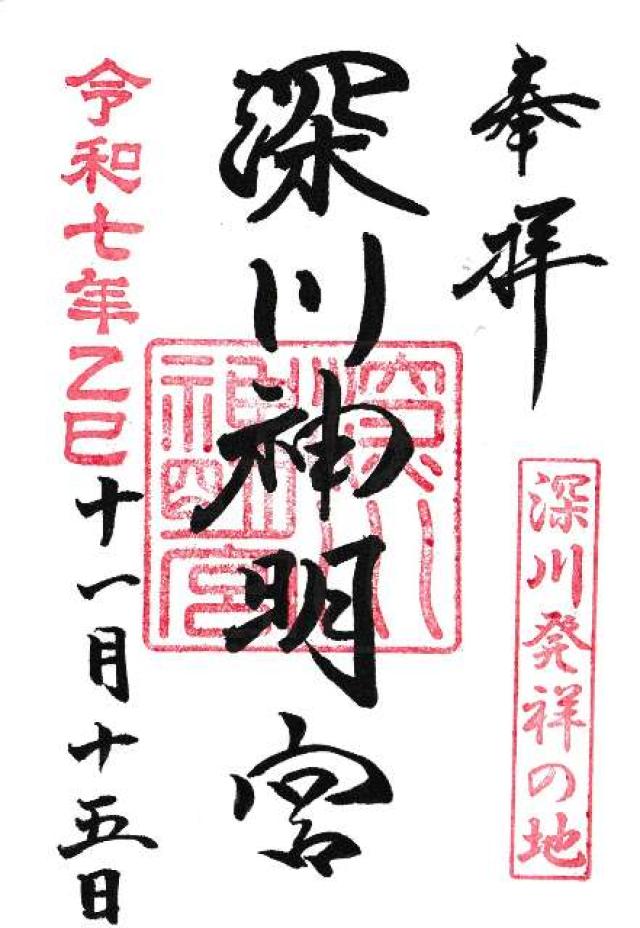 奉拝
深川発祥の地
深川神明宮
深川神明宮
令和七年乙巳十一月十五日